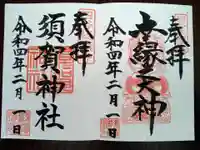 奉拝
縁天神
令和四年二月一日
奉拝
須賀神社
令和四年二月 日